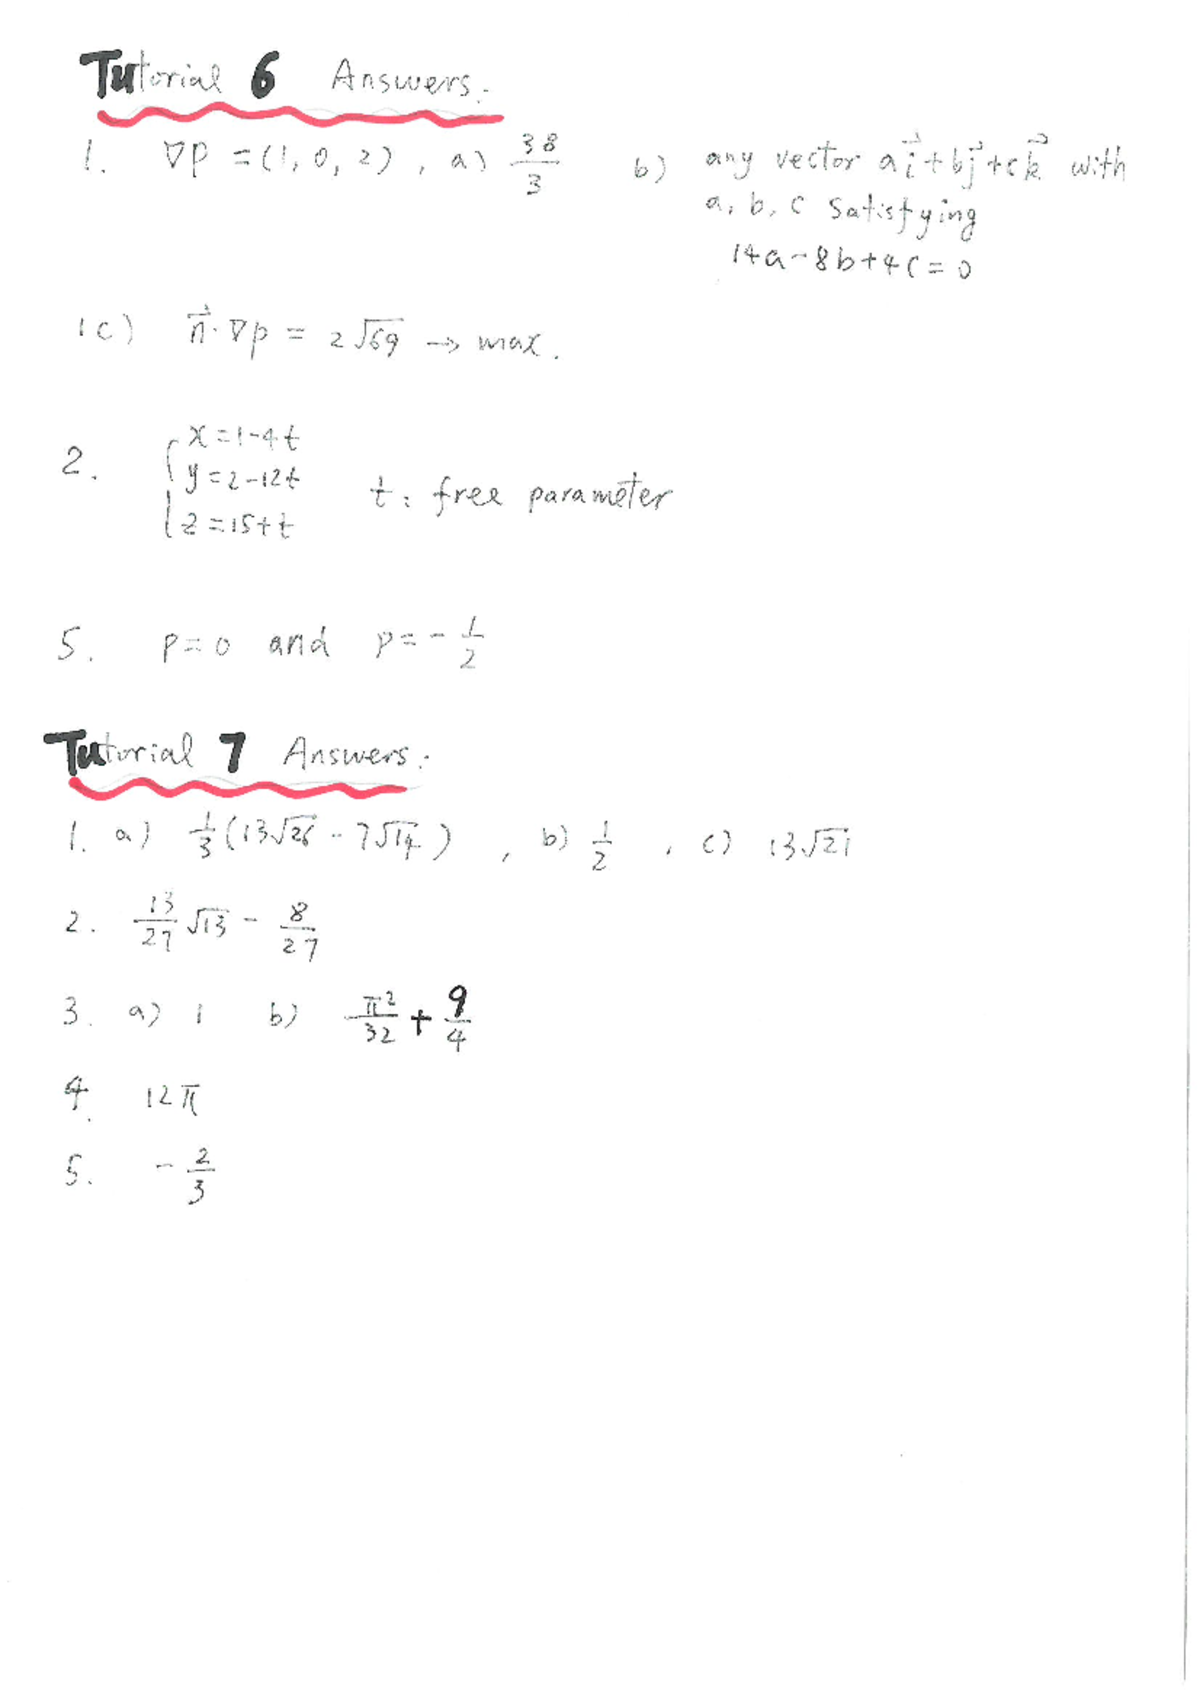 Tutorial 6 Answers.
1. ∇P = (1, 0, 2), a) 38/3 b) any vector a i⃗ + b j⃗ + c k⃗ with
a, b, c satisfying
14a - 8b + 4c = 0
1c) n⃗ · ∇p = 2√69 → max.
2. { x = 1-4t
y = 2-12t
z = 15+t
t: free parameter
5. P = 0 and P = - 1/2
Tutorial 7 Answers:
1. a) 1/3 (13√26 - 7√14), b) 1/2, c) 13√21
2. 13/27 √13 - 8/27
3. a) 1 b) π²/32 + 9/4
4. 12π
5. - 2/3